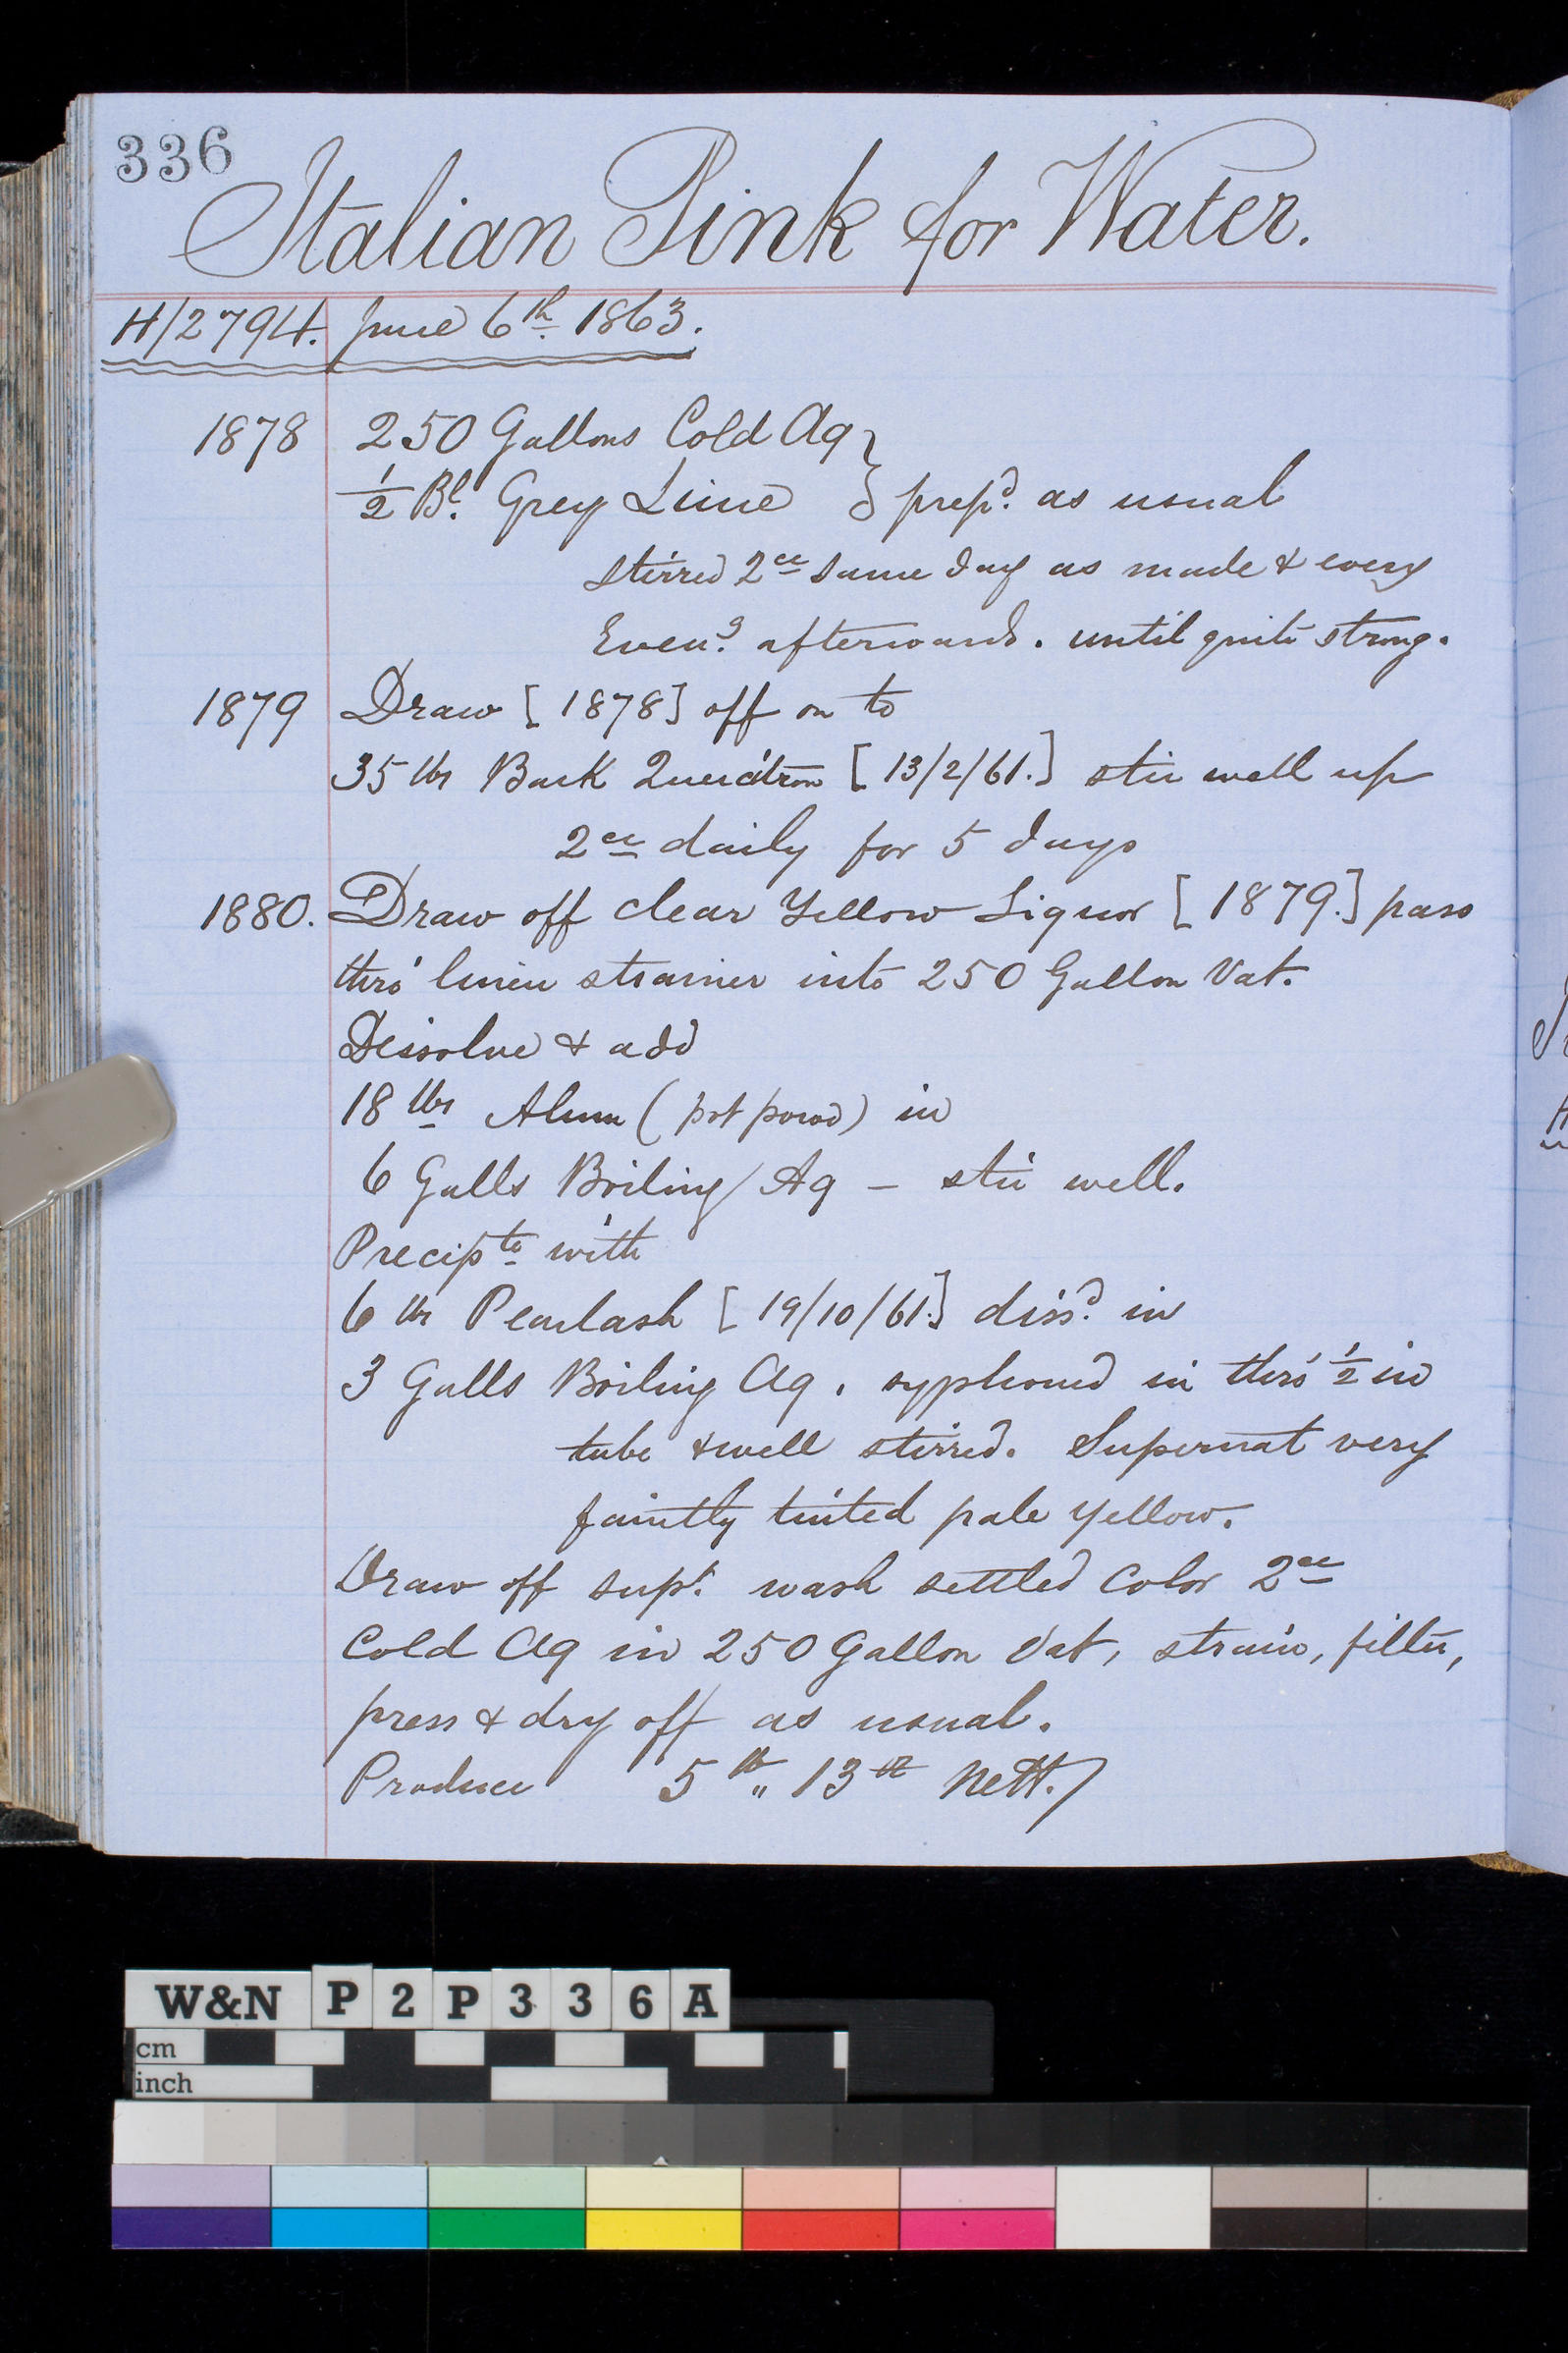 336
Italian Pink for Water.
H/2794. June 6th 1863.
1878 250 Gallons Cold Aq
1/2 Bl. Grey Lime } prepd. as usual
stirred 2ce same day as made & every
Eveng. afterwards. until quite strong.
1879 Draw [1878] off on to
35 lbs Bark Quercitron [13/2/61.] stir well up
2ce daily for 5 days
1880. Draw off clear Yellow Liquor [1879.] pass
thro' linen strainer into 250 Gallon Vat.
Dissolve & add
18 lbs Alum (pot powd) in
6 Galls Boiling Aq – stir well.
Precipte with
6 lbs Pearlash [19/10/61.] dissd. in
3 Galls Boiling Aq. syphoned in thro' 1/2 in
tube & well stirred. Supernat very
faintly tinted pale yellow.
Draw off supt. wash settled Color 2ce
Cold Aq in 250 Gallon Vat, strain, filter,
press & dry off as usual.
Produce 5 lb „ 13 oz Nett.
W&N P2P336A
cm
inch